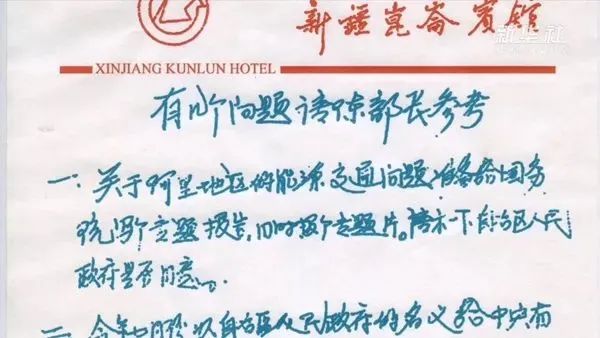 新疆崑崙賓館
新华社
XINJIANG KUNLUN HOTEL
有几个问题请陈部长参考
一、关于阿里地区的能源交通问题准备给国务
院写个专题报告,同时报个专题片。请示一下自治区人民
政府是否同意。
以自治区人民政府的名义给中央有